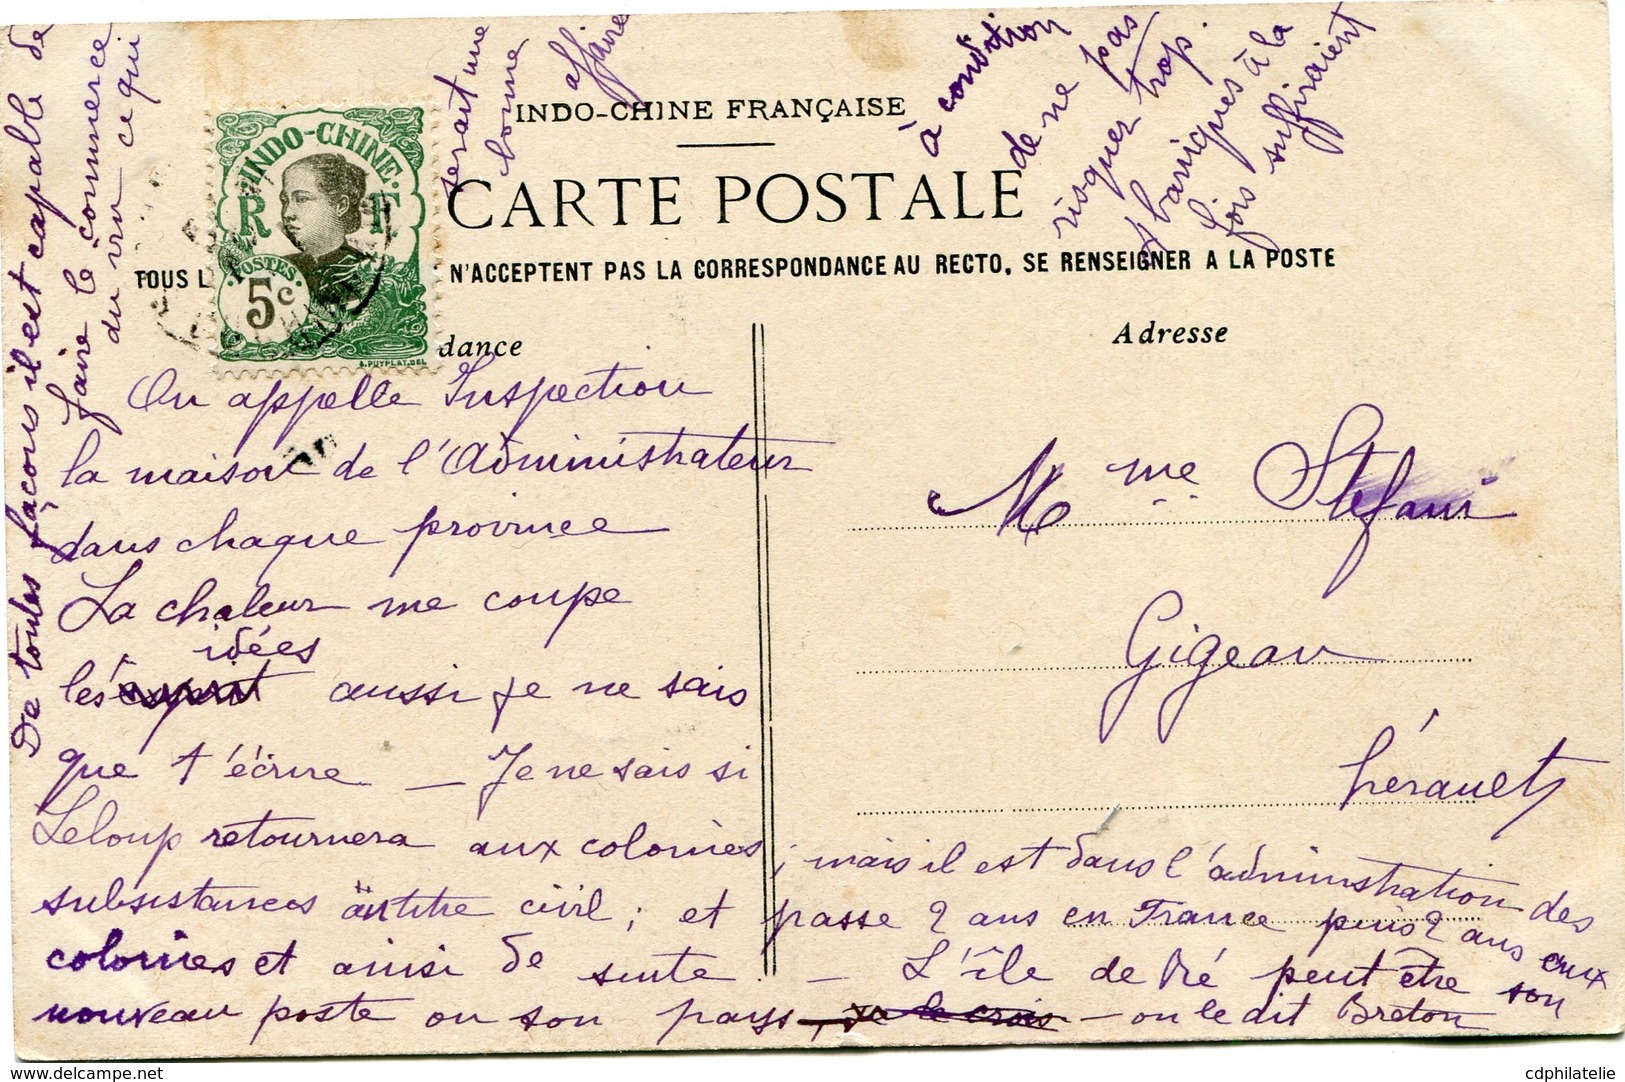 INDO-CHINE FRANÇAISE
CARTE POSTALE
TOUS L N'ACCEPTENT PAS LA CORRESPONDANCE AU RECTO, SE RENSEIGNER A LA POSTE
dance
Adresse
INDO-CHINE
R F
POSTES
5c
A. PUYPLAT. DEL
On appelle Inspection
la maison de l'Administrateur
dans chaque province
La chaleur me coupe
idées
les esprit aussi je ne sais
que t'écrire _ Je ne sais si
Leloup retournera aux colonies ; mais il est dans l'administration des
subsistances à titre civil ; et passe 2 ans en France puis 2 ans aux
colonies et ainsi de suite _ L'île de Ré peut être son
nouveau poste ou son pays, je le crois _ on le dit Breton
De toutes façons il est capable de
faire le commerce
du vin ce qui
serait une
bonne
affaire
à condition
de ne pas
risquer trop.
4 barriques à la
fois suffiraient
Mme Stefani
Gigean
hérault
delcampe.net
cdphilatelie